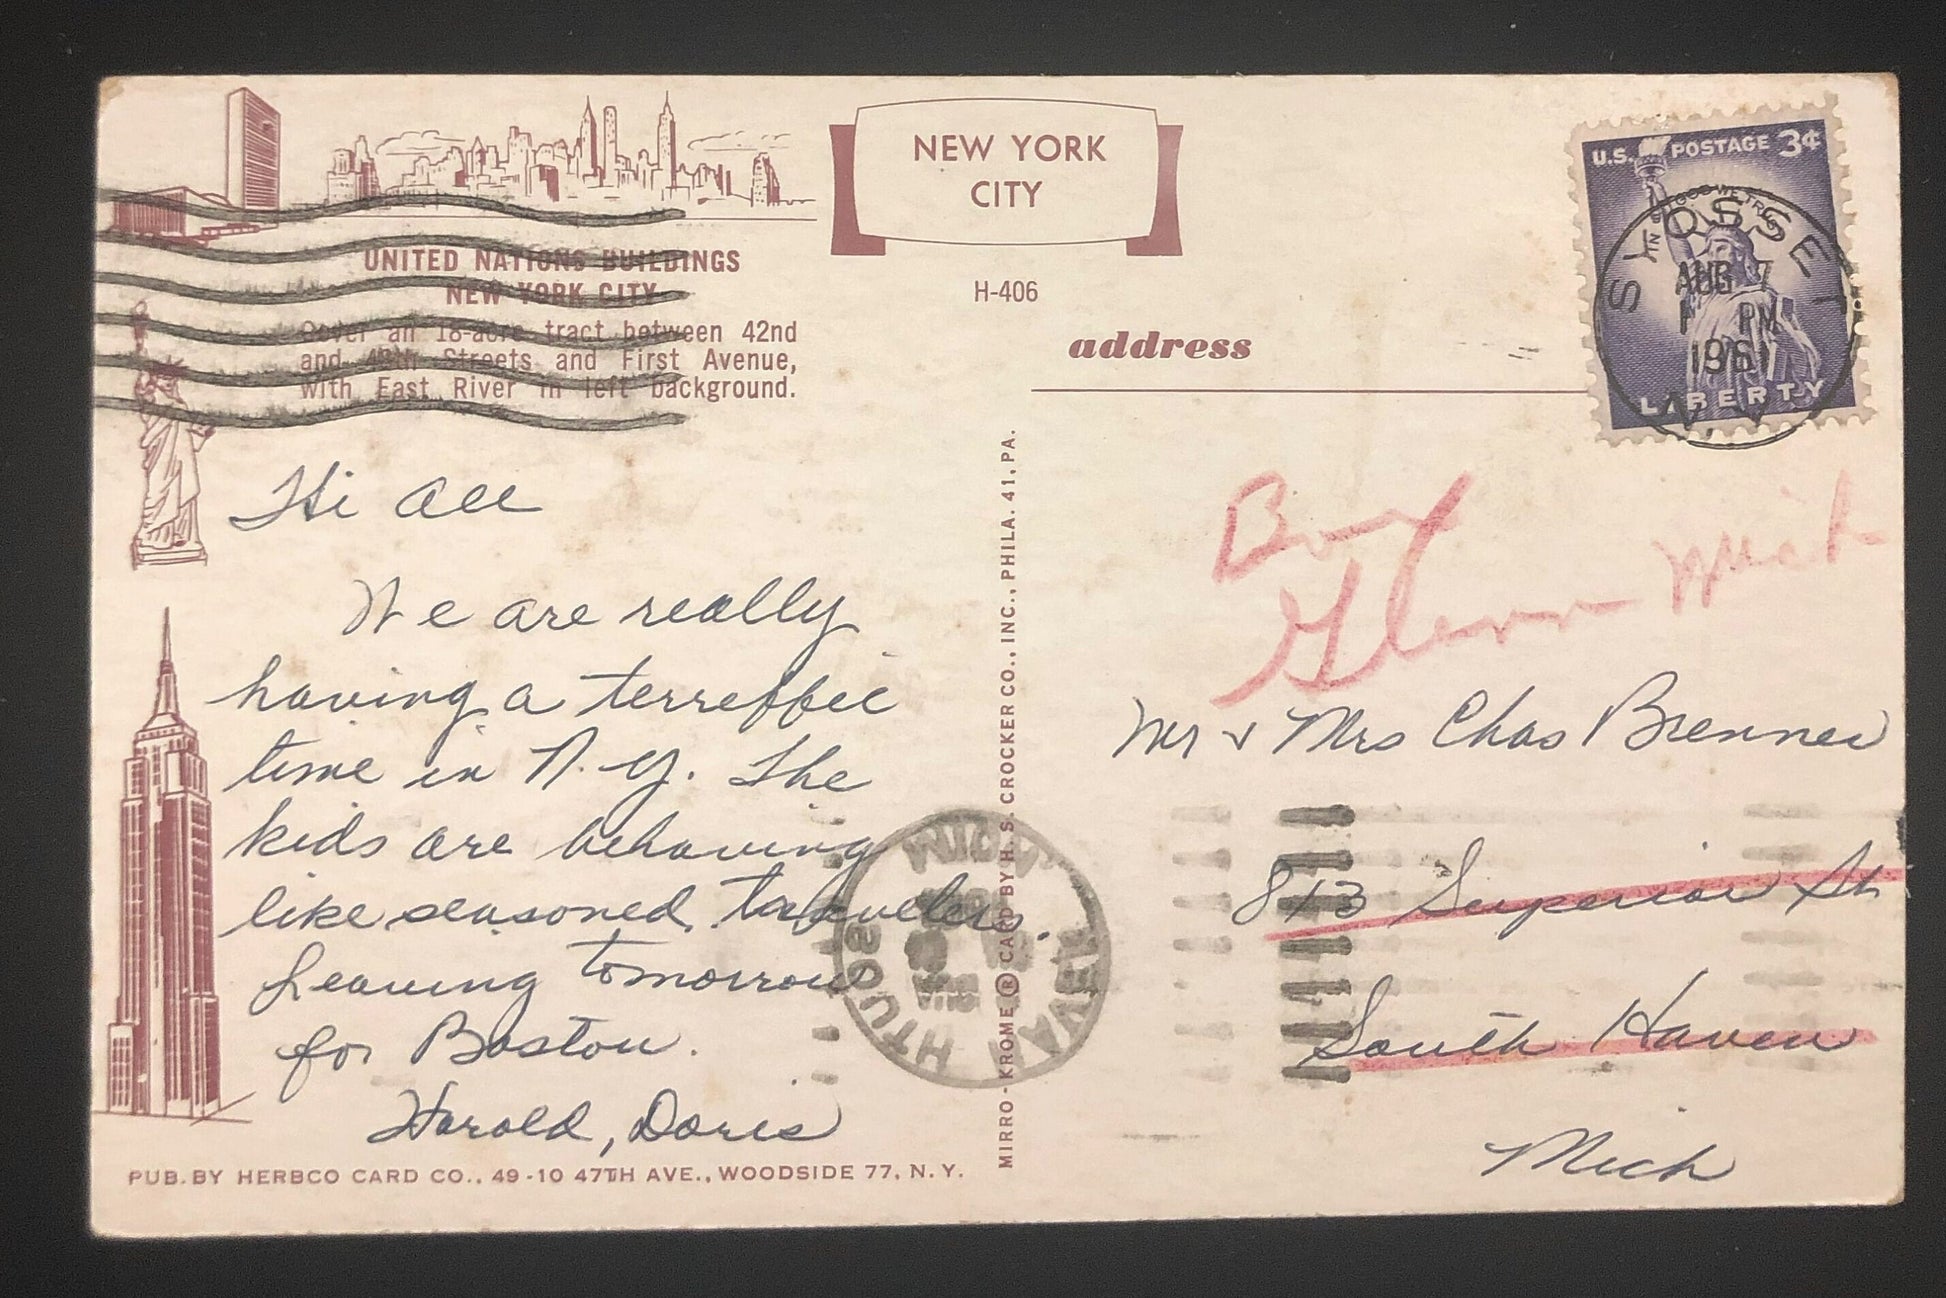 NEW YORK
CITY
UNITED NATIONS BUILDINGS
NEW YORK CITY
Cover an 18-acre tract between 42nd
and 48th Streets and First Avenue,
with East River in left background.
H-406
address
U.S. POSTAGE 3¢
IN GOD WE TRUST
LIBERTY
SYOSSET
AUG 7
PM
1961
N.Y.
Hi all
We are really
having a terreffic
time in N.Y. The
kids are behaving
like seasoned travelers.
Leaving tomorrow
for Boston.
Harold, Doris
PUB. BY HERBCO CARD CO., 49-10 47TH AVE., WOODSIDE 77, N.Y.
MIRRO-KROME ® CARD BY H. S. CROCKER CO., INC., PHILA. 41, PA.
SOUTH HAVEN
MICH
Box
Glenn Mich
Mr & Mrs Chas Brenner
813 Superior St
South Haven
Mich